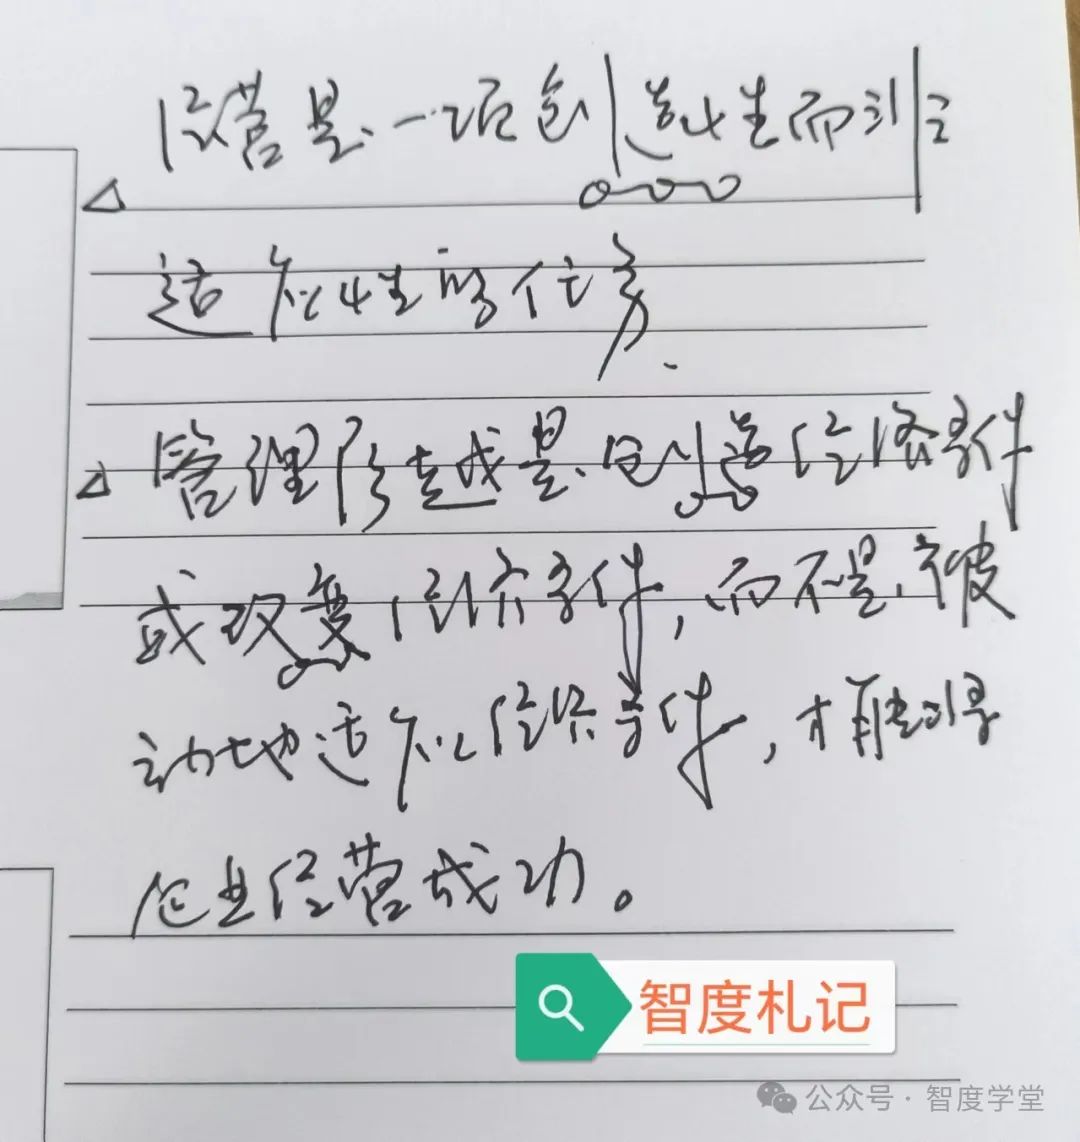 △ 经营是一项创造性而非
适应性的任务.
△ 管理阶越是创造经济条件
或改变经济条件，而不是被
动地适应经济条件，才能得
企业经营成功。
智度札记
公众号·智度学堂